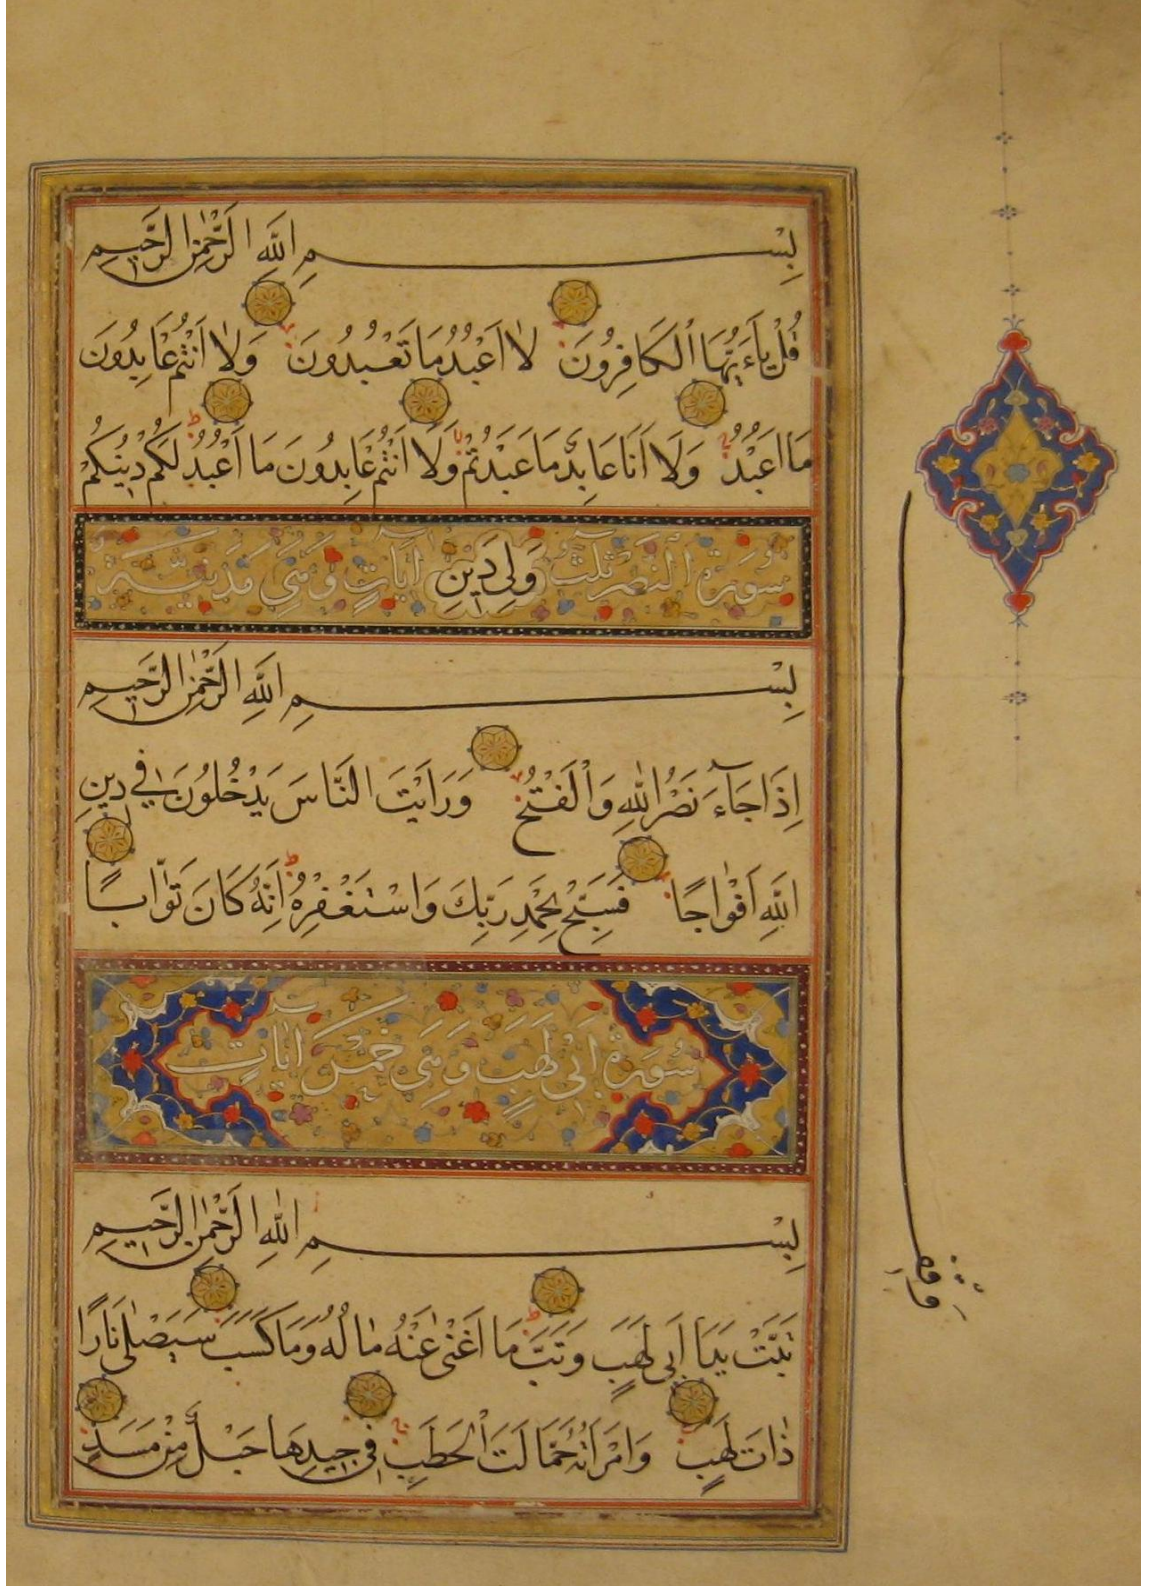 بِسْمِ اللَّهِ الرَّحْمٰنِ الرَّحِيمِ
قُلْ يَاءَيُّهَا الْكَافِرُونَ لَا اَعْبُدُ مَا تَعْبُدُونَ وَلَا اَنْتُمْ عَابِدُونَ
مَا اَعْبُدُ وَلَا اَنَا عَابِدٌ مَا عَبَدْتُمْ وَلَا اَنْتُمْ عَابِدُونَ مَا اَعْبُدُ لَكُمْ دِينُكُمْ
سُورَةُ النَّصْرِ ثَلٰثُ وَلِيَ دِينِ اٰيَاتٍ وَهِيَ مَدَنِيَّةٌ
بِسْمِ اللَّهِ الرَّحْمٰنِ الرَّحِيمِ
اِذَا جَآءَ نَصْرُ اللّٰهِ وَالْفَتْحُ وَرَاَيْتَ النَّاسَ يَدْخُلُونَ فِي دِينِ
اللَّهِ اَفْوَاجًا فَسَبِّحْ بِحَمْدِ رَبِّكَ وَاسْتَغْفِرْهُ اِنَّهُ كَانَ تَوَّابًا
سُورَةُ اَبِي لَهَبٍ وَهِيَ خَمْسُ اٰيَاتٍ
بِسْمِ اللّٰهِ الرَّحْمٰنِ الرَّحِيمِ
تَبَّتْ يَدَا اَبِي لَهَبٍ وَتَبَّ مَا اَغْنٰى عَنْهُ مَالُهُ وَمَا كَسَبَ سَيَصْلٰى نَارًا
ذَاتَ لَهَبٍ وَامْرَاَتُهُ حَمَّالَتَ الْحَطَبِ فِي جِيدِهَا حَبْلٌ مِنْ مَسَدٍ